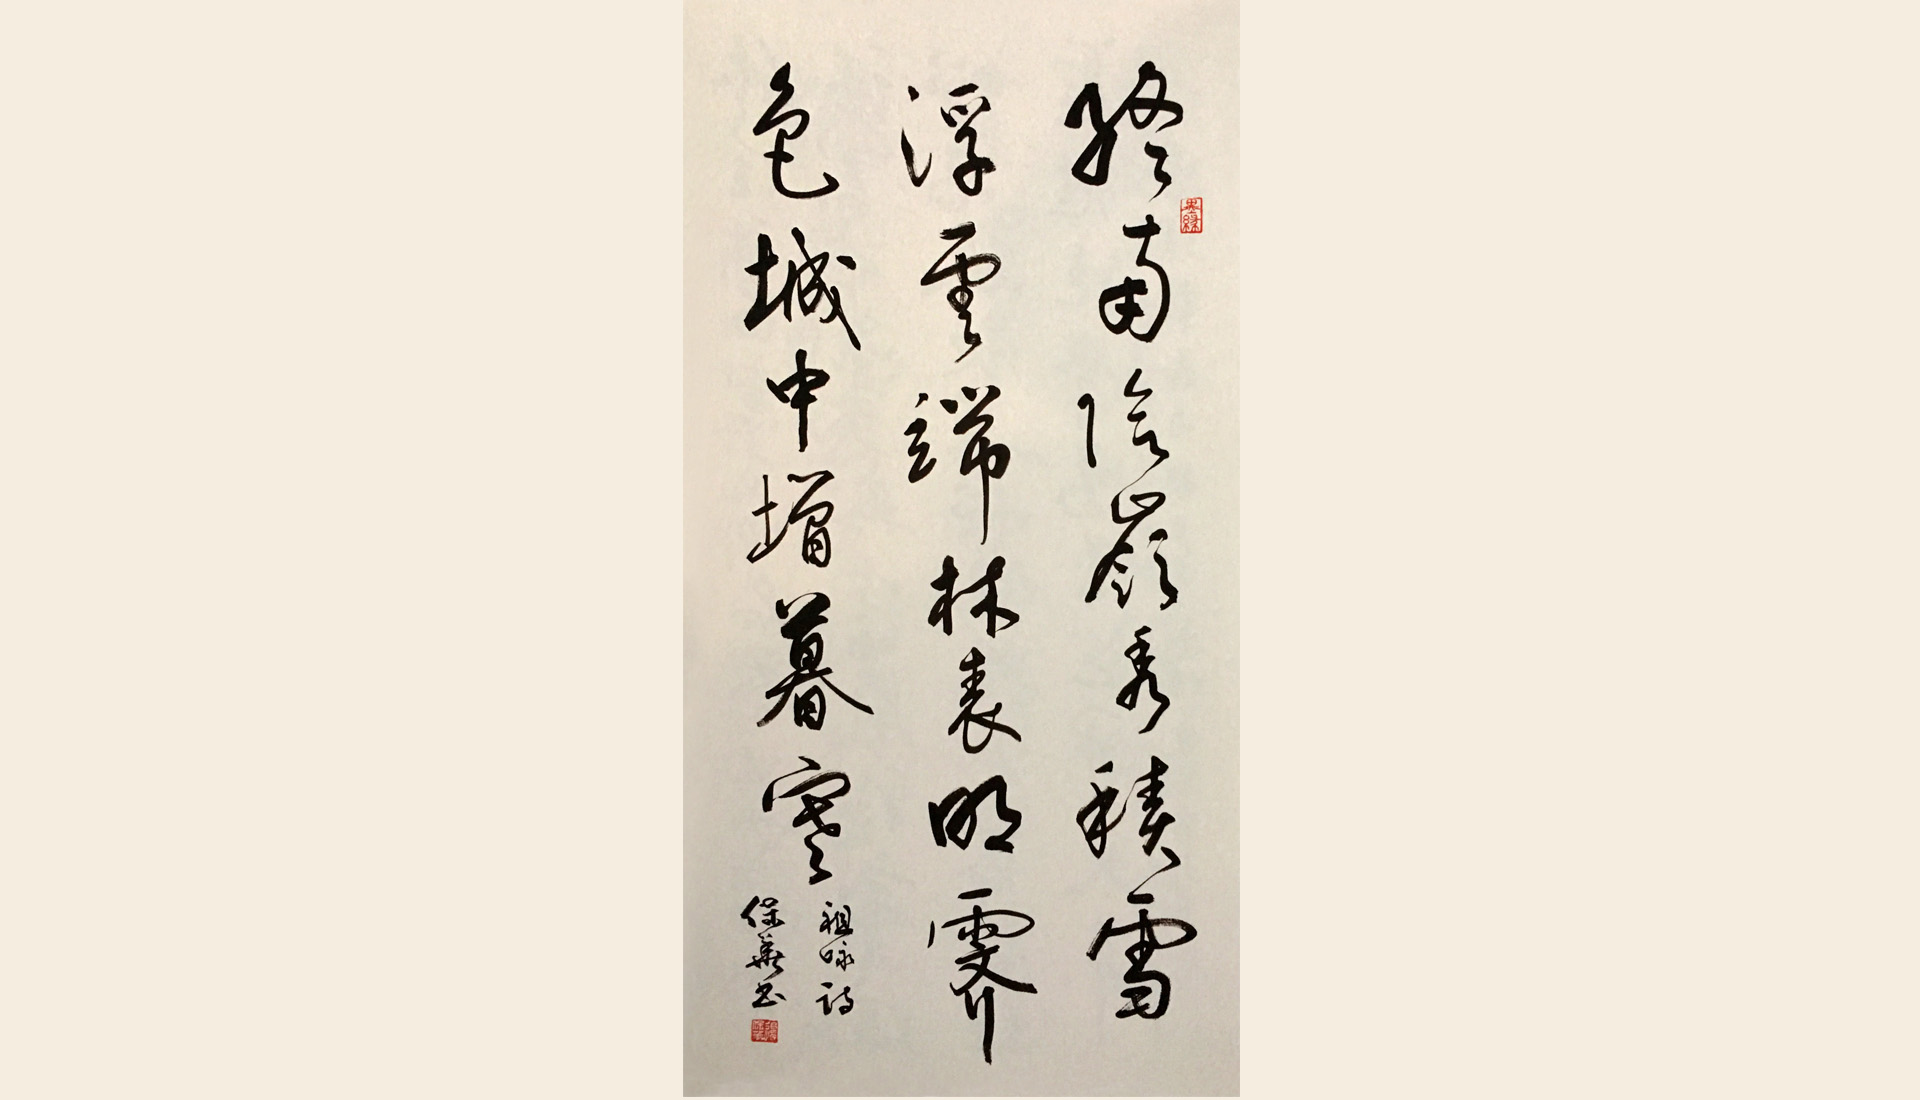 終南陰嶺秀積雪
浮雲端林表明霽
色城中增暮寒
祖咏詩
保華书
墨緣